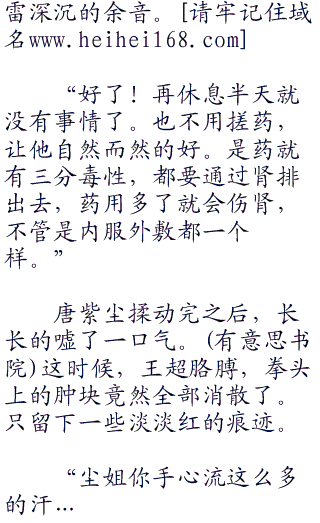 雷深沉的余音。[请牢记住域
名www.heihei168.com]
“好了！再休息半天就
没有事情了。也不用搓药，
让他自然而然的好。是药就
有三分毒性，都要通过肾排
出去，药用多了就会伤肾，
不管是内服外敷都一个
样。”
唐紫尘揉动完之后，长
长的嘘了一口气。(有意思书
院)这时候，王超胳膊，拳头
上的肿块竟然全部消散了。
只留下一些淡淡红的痕迹。
“尘姐你手心流这么多
的汗…